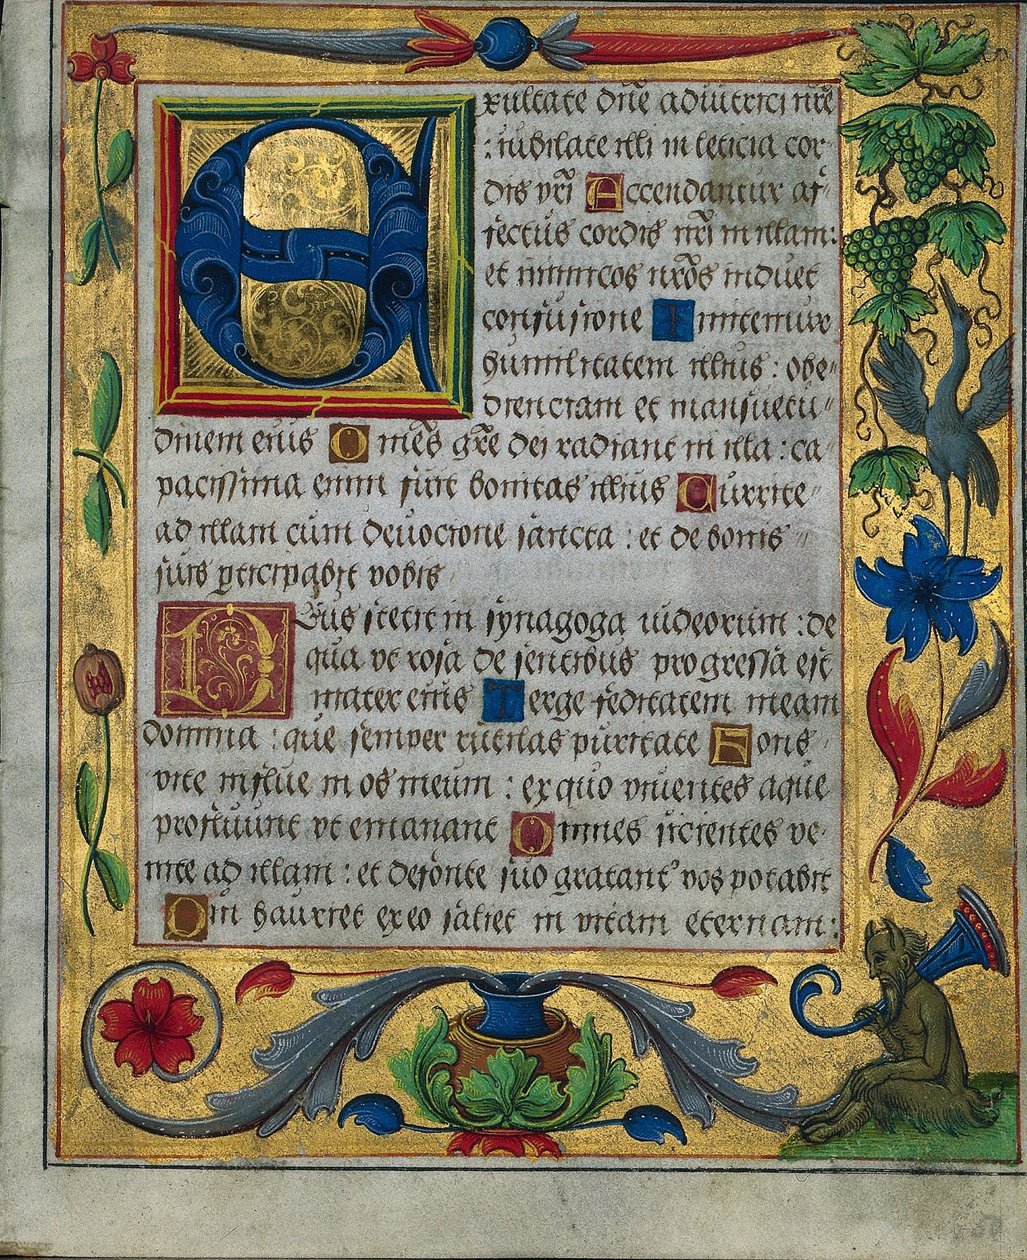 Exultate dn̄e adiutrici nr̄e
: iubilate illi in leticia cor-
dis vr̄i Accendantur af-
fectus cordis nr̄i in illam:
et inimicos nr̄os induet
confusione Imitemur
humilitatem illius : obe-
dientiam et mansuetu-
dinem eius Omēs grē dei radiant in illa : ca-
pacissima enim fuit bonitas illius Currite
ad illam cum deuocione sancta : et de bonis
suis pticipabit vobis
Que stetit in synagoga iudeorum : de
qua vt rosa de sentibus progressa est
mater eius Terge feditatem meam
domina : que semper rutilas puritate Fons
vite influe in os meum : ex quo viuentes aque
profluunt vt emanant Omnes sicientes ve-
nite ad illam : et de fonte suo gratant' vos potabit
Qui hauriet ex eo saliet in vitam eternam: